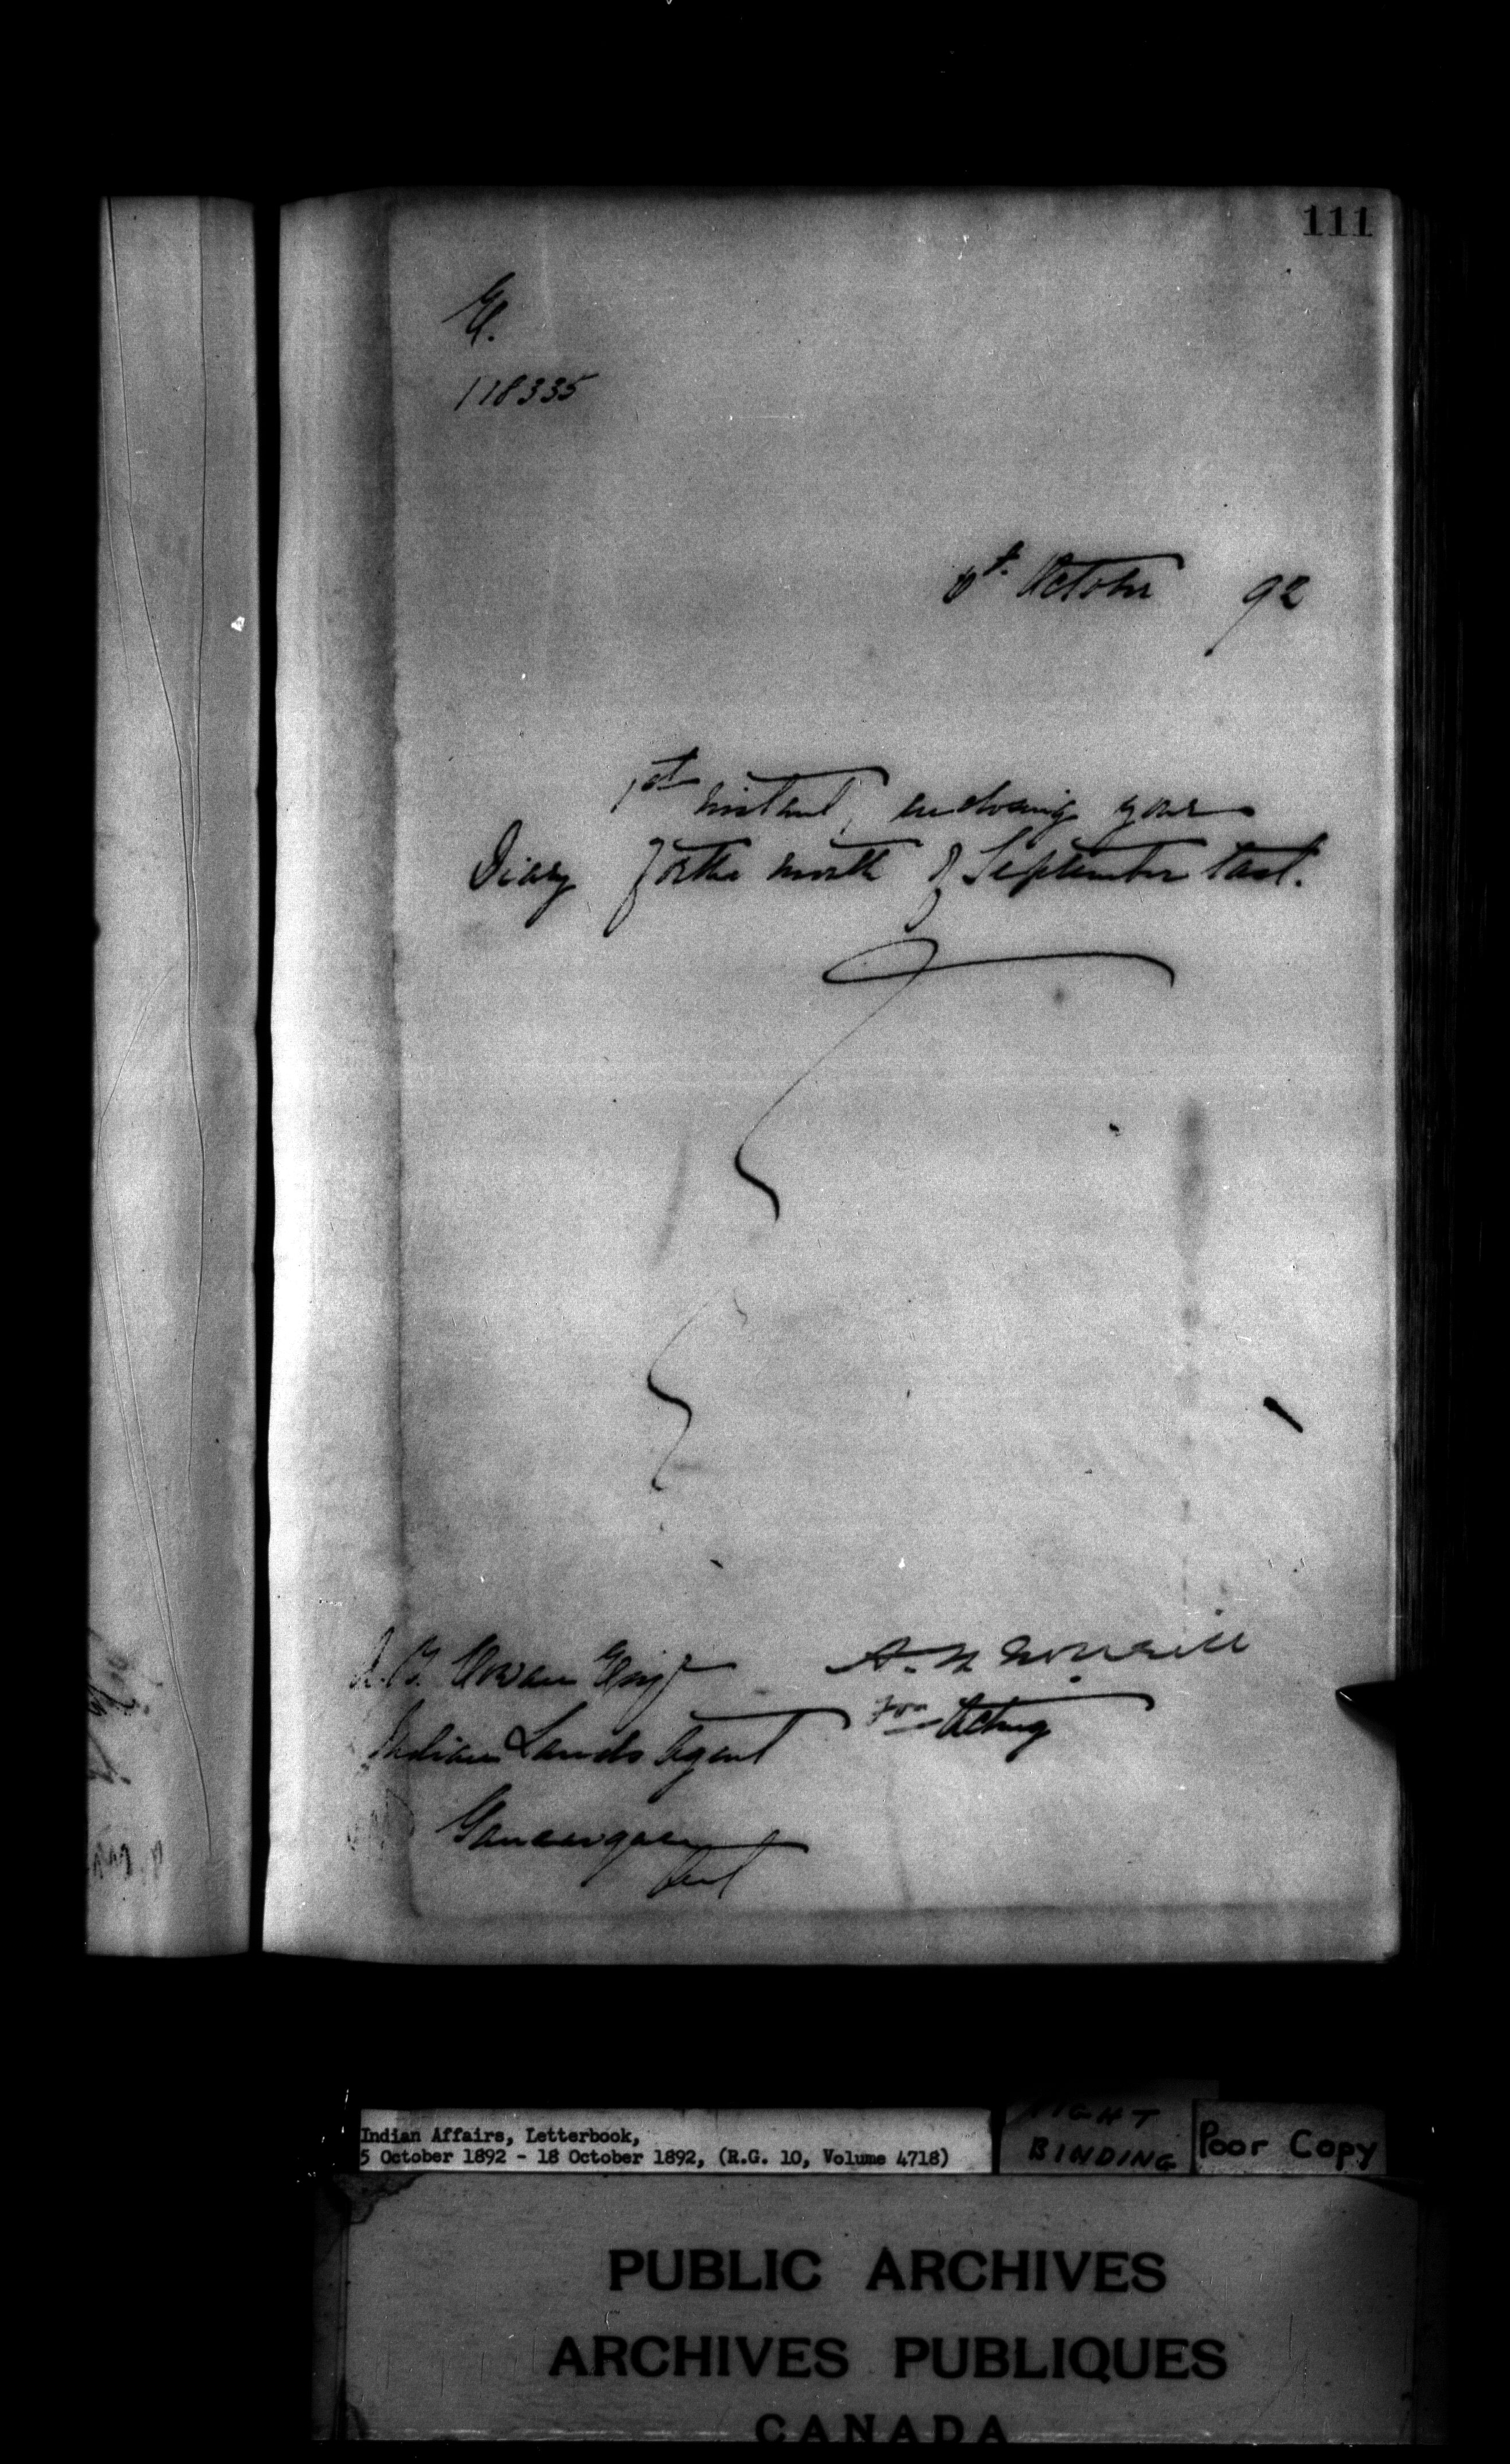 111
E.
118335
October 92
1st instant, enclosing your
Diary for the month of September last.
A. N. McNeill
for Acting
Cowan Esqr
Indian Lands Agent
Gananoque
Ont
Indian Affairs, Letterbook,
5 October 1892 - 18 October 1892, (R.G. 10, Volume 4718)
BINDING
Poor Copy
PUBLIC ARCHIVES
ARCHIVES PUBLIQUES
CANADA